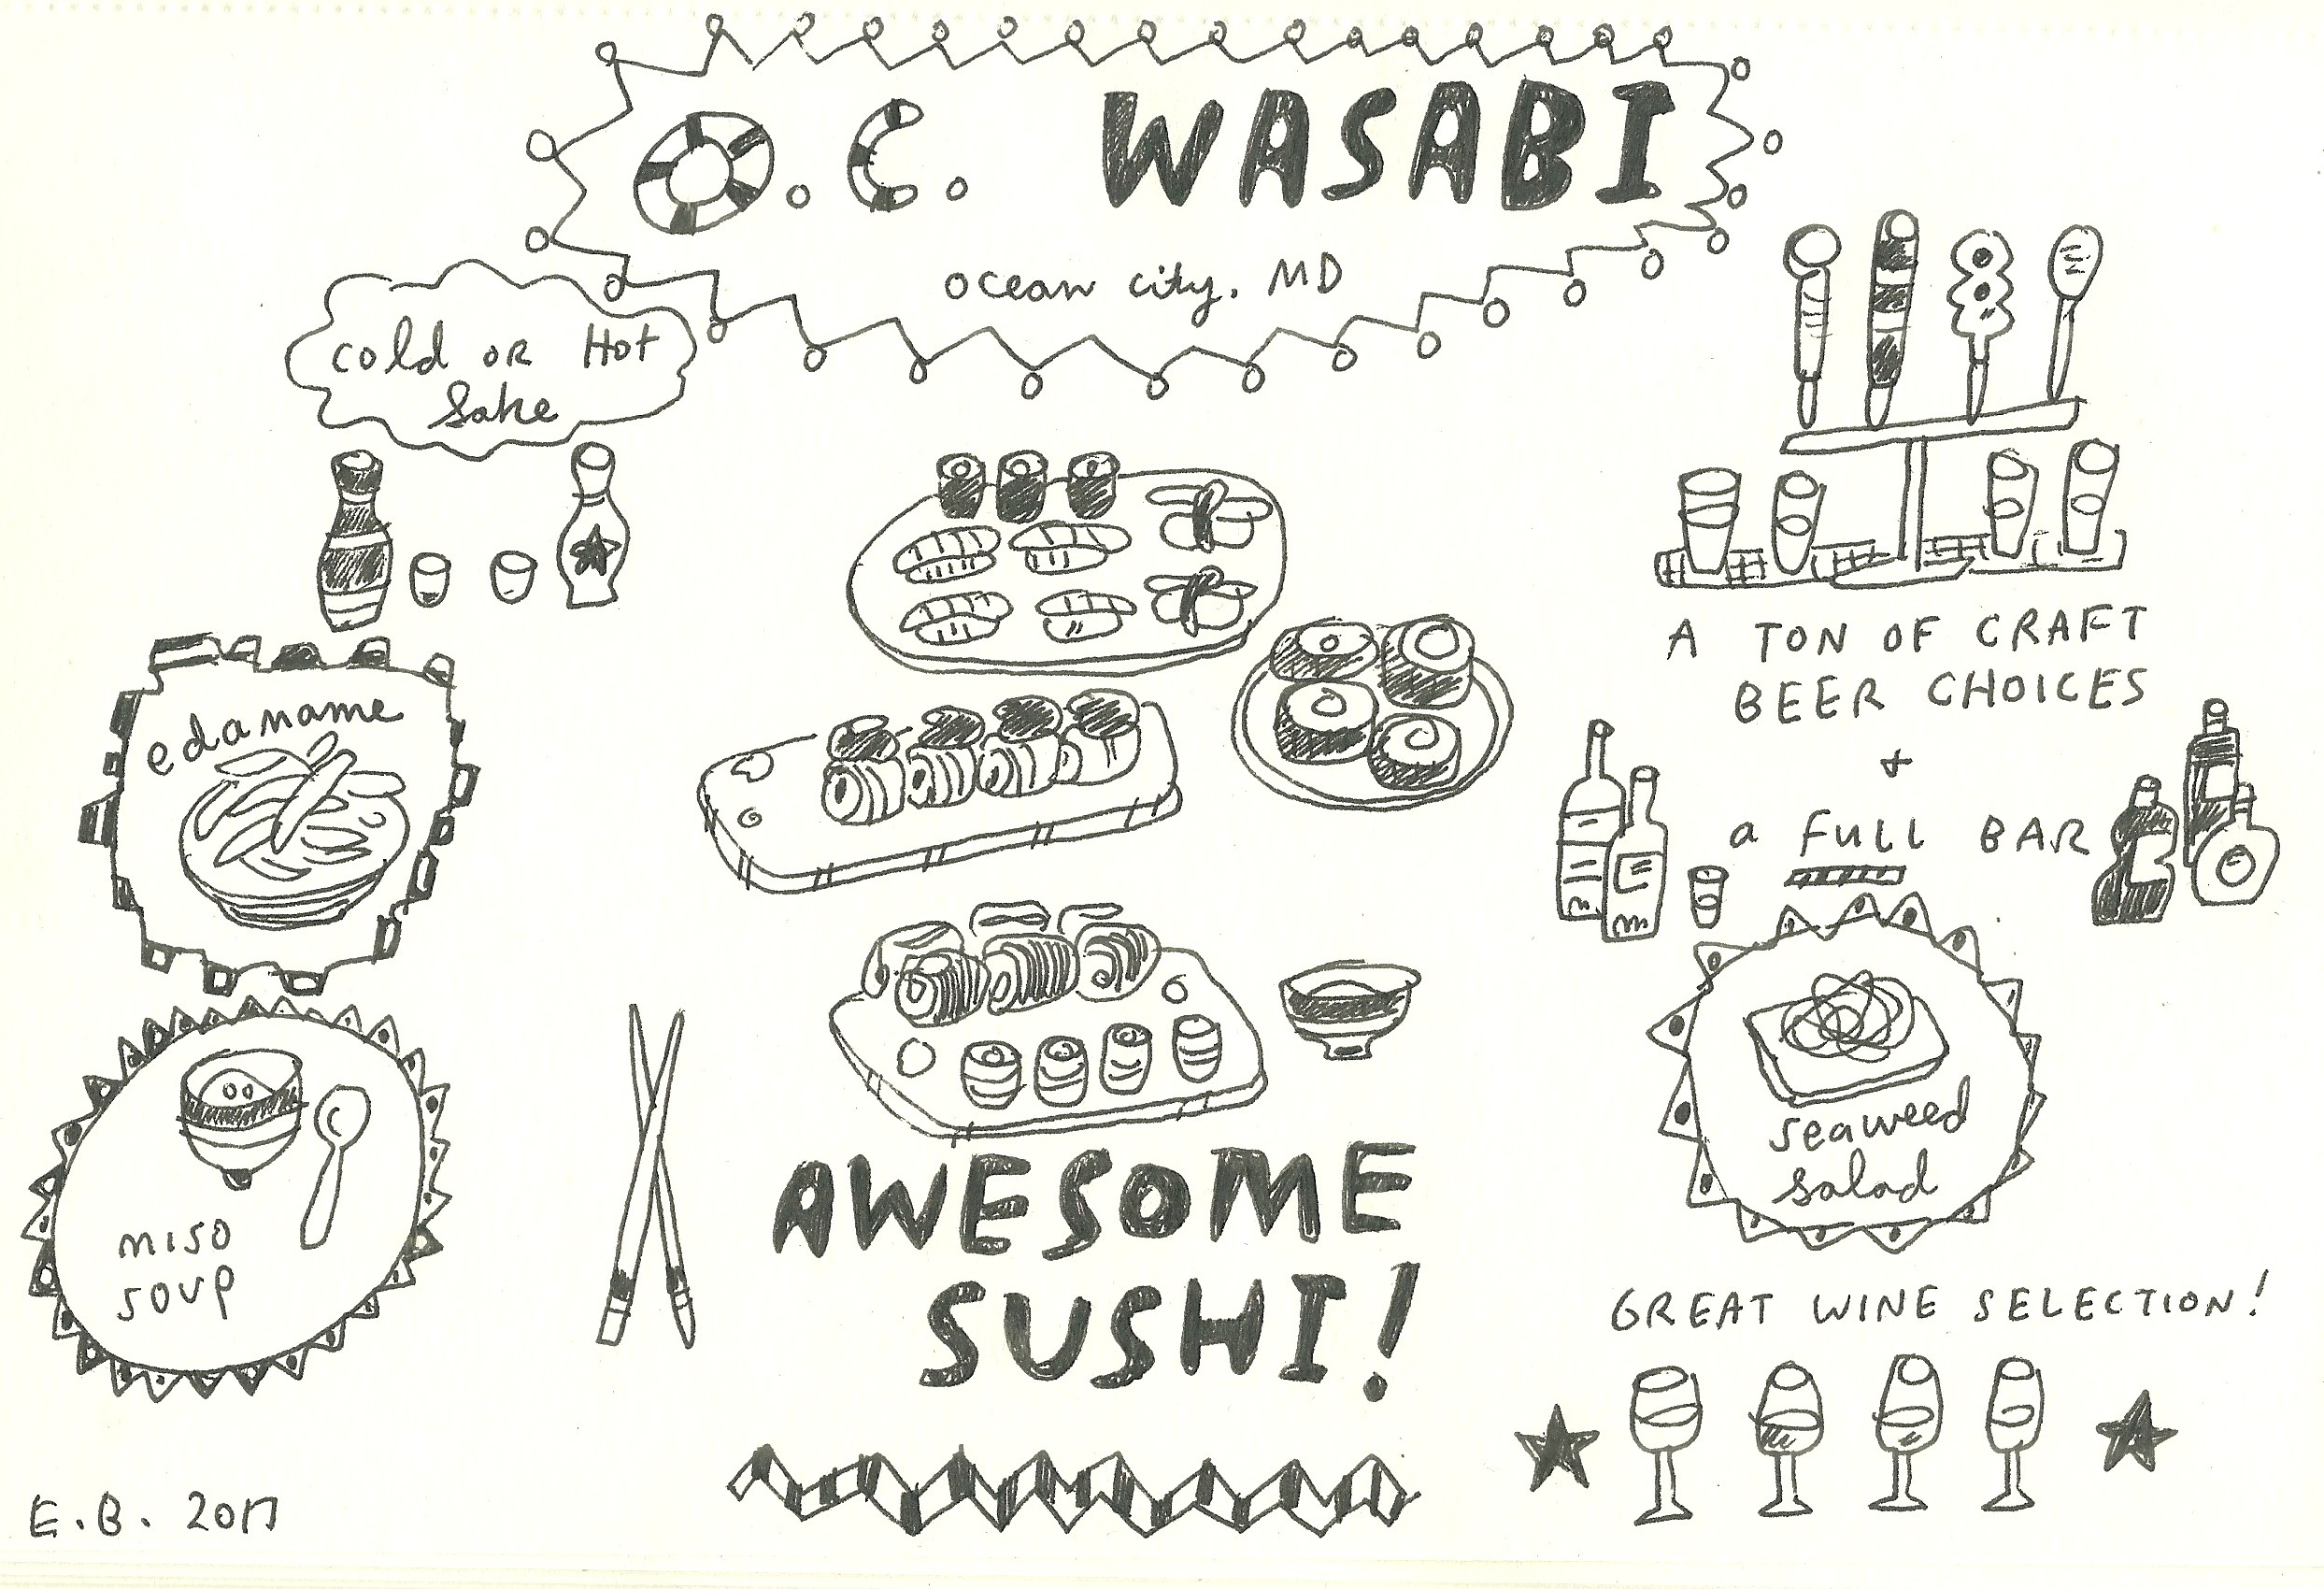 O.C. WASABI
ocean city, MD
cold OR Hot
Sake
edaname
miso
soup
A TON OF CRAFT
BEER CHOICES
+
a FULL BAR
seaweed
salad
AWESOME
SUSHI!
GREAT WINE SELECTION!
E.B. 2017